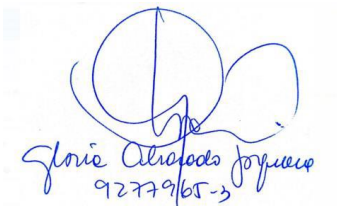 Gloria Alvarado Jorquera
9277965-3